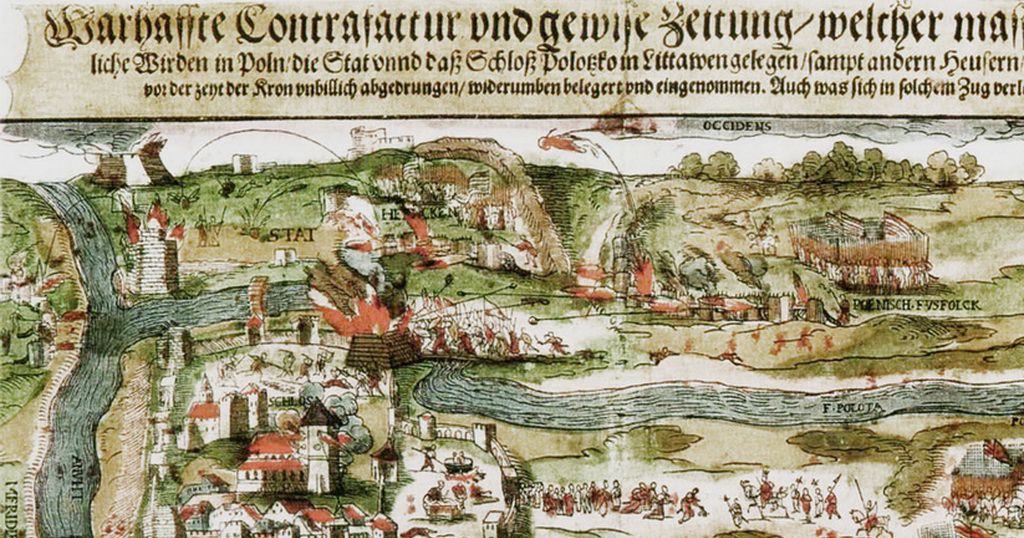 Warhaffte Contrafactur vnd gewise Zeitung/ welcher mas
liche Wirden in Poln/ die Stat vnnd daß Schloß Polotzko in Littawen gelegen/ sampt andern Heusern/
vor der zeyt der Kron vnbillich abgedrungen/ widerumben belegert vnd eingenommen. Auch was sich in solchem Zug verl
OCCIDENS
STAT
POLNISCH FVSFOLCK
F. POLOTA
SCHLOS